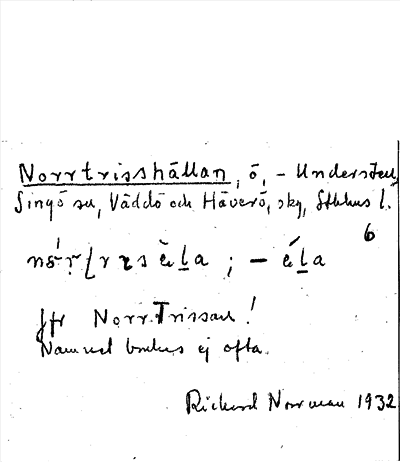 Norrtrisshällan, ö, – Understen,
Singö sn, Väddö och Häverö, skg, Sthlms l.
6
; –
Jfr Norr Trissan!
Namnet brukas ej ofta.
Rickard Norman 1932